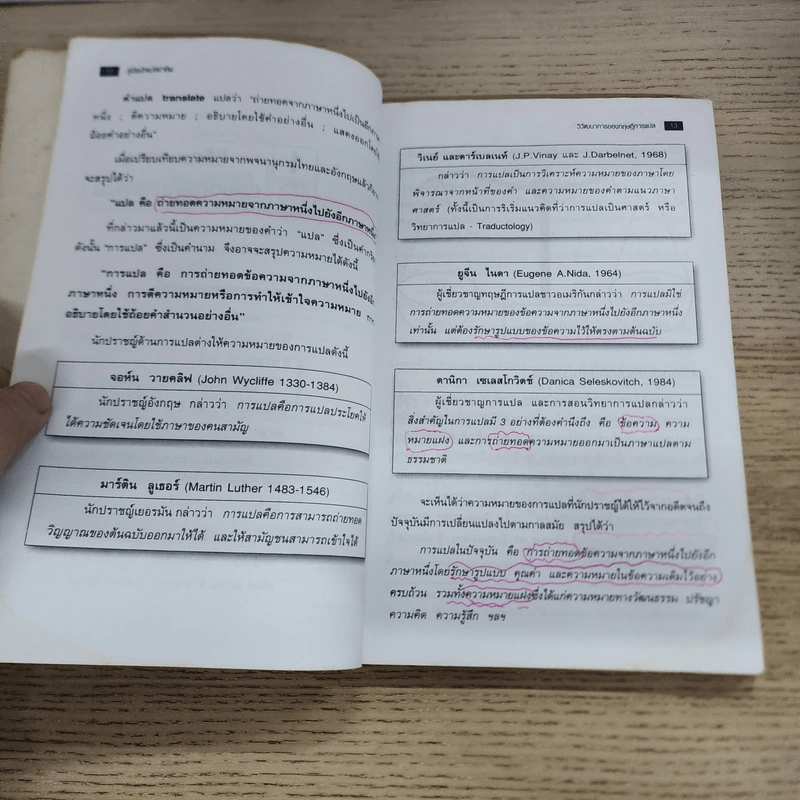 คู่มือนักแปลอาชีพ
คำแปล translate แปลว่า "ถ่ายทอดจากภาษาหนึ่งไปเป็นอีกภาษา
หนึ่ง ; ตีความหมาย ; อธิบายโดยใช้คำอย่างอื่น ; แสดงออกโดยใช้
ถ้อยคำอย่างอื่น"
เมื่อเปรียบเทียบความหมายจากพจนานุกรมไทยและอังกฤษแล้วก็
จะสรุปได้ว่า
"แปล คือ ถ่ายทอดความหมายจากภาษาหนึ่งไปยังอีกภาษาหนึ่ง
ที่กล่าวมาแล้วนี้เป็นความหมายของคำว่า "แปล" ซึ่งเป็นคำกริยา
ดังนั้น "การแปล" ซึ่งเป็นคำนาม จึงอาจจะสรุปความหมายได้ดังนี้
"การแปล คือ การถ่ายทอดข้อความจากภาษาหนึ่งไปยังอีก
ภาษาหนึ่ง การตีความหมายหรือการทำให้เข้าใจความหมาย การ
อธิบายโดยใช้ถ้อยคำสำนวนอย่างอื่น"
นักปราชญ์ด้านการแปลต่างให้ความหมายของการแปลดังนี้
จอห์น วายคลิฟ (John Wycliffe 1330-1384)
นักปราชญ์อังกฤษ กล่าวว่า การแปลคือการแปลประโยคให้
ได้ความชัดเจนโดยใช้ภาษาของคนสามัญ
มาร์ติน ลูเธอร์ (Martin Luther 1483-1546)
นักปราชญ์เยอรมัน กล่าวว่า การแปลคือการสามารถถ่ายทอด
วิญญาณของต้นฉบับออกมาให้ได้ และให้สามัญชนสามารถเข้าใจได้
วิวัฒนาการของทฤษฎีการแปล 13
วิเนย์ และดาร์เบลเนท์ (J.P.Vinay และ J.Darbelnet, 1968)
กล่าวว่า การแปลเป็นการวิเคราะห์ความหมายของภาษาโดย
พิจารณาจากหน้าที่ของคำ และความหมายของคำตามแนวภาษา
ศาสตร์ (ทั้งนี้เป็นการริเริ่มแนวคิดที่ว่าการแปลเป็นศาสตร์ หรือ
วิทยาการแปล - Traductology)
ยูจีน ไนดา (Eugene A.Nida, 1964)
ผู้เชี่ยวชาญทฤษฎีการแปลชาวอเมริกันกล่าวว่า การแปลมิใช่
การถ่ายทอดความหมายของข้อความจากภาษาหนึ่งไปยังอีกภาษาหนึ่ง
เท่านั้น แต่ต้องรักษารูปแบบของข้อความไว้ให้ตรงตามต้นฉบับ
ดานิกา เซเลสโกวิตช์ (Danica Seleskovitch, 1984)
ผู้เชี่ยวชาญการแปล และการสอนวิทยาการแปลกล่าวว่า
สิ่งสำคัญในการแปลมี 3 อย่างที่ต้องคำนึงถึง คือ ข้อความ ความ
หมายแฝง และการถ่ายทอดความหมายออกมาเป็นภาษาแปลตาม
ธรรมชาติ
จะเห็นได้ว่าความหมายของการแปลที่นักปราชญ์ได้ให้ไว้จากอดีตจนถึง
ปัจจุบันมีการเปลี่ยนแปลงไปตามกาลสมัย สรุปได้ว่า
การแปลในปัจจุบัน คือ การถ่ายทอดข้อความจากภาษาหนึ่งไปยังอีก
ภาษาหนึ่งโดยรักษารูปแบบ คุณค่า และความหมายในข้อความเดิมไว้อย่าง
ครบถ้วน รวมทั้งความหมายแฝงซึ่งได้แก่ความหมายทางวัฒนธรรม ปรัชญา
ความคิด ความรู้สึก ฯลฯ